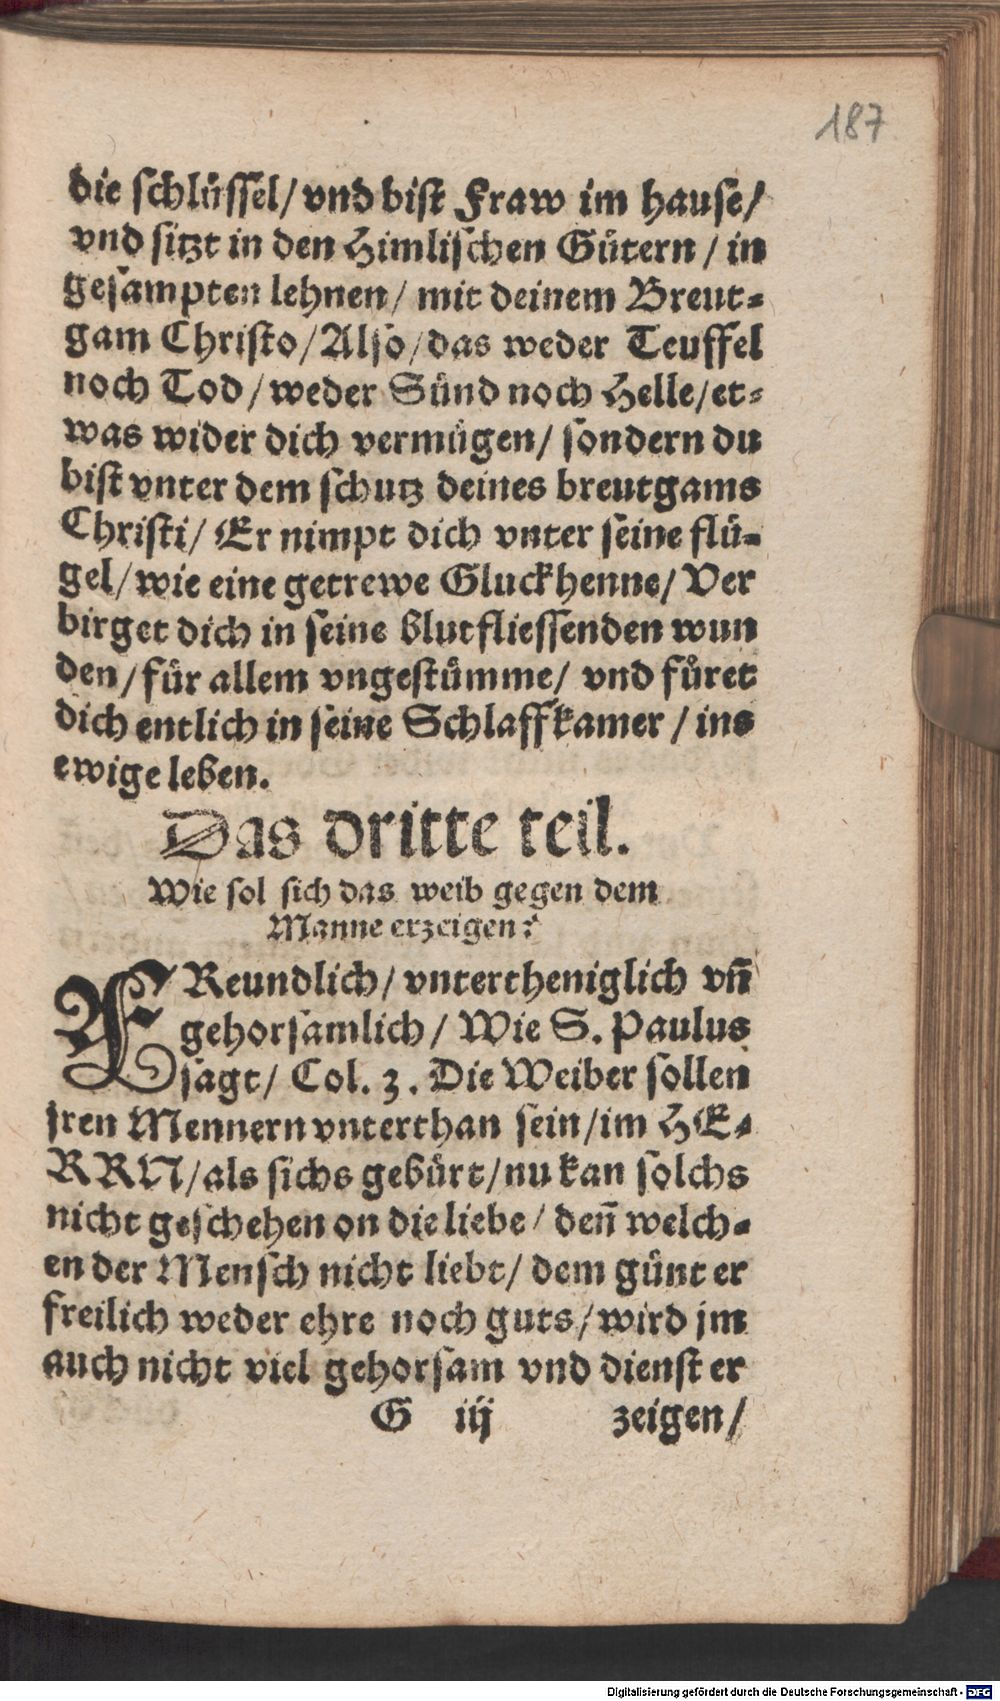 187
die schlüssel/ vnd bist Fraw im hause/
vnd sitzt in den Himlischen Gütern / in
gesampten lehnen/ mit deinem Breut-
gam Christo/ Also/ das weder Teuffel
noch Tod/ weder Sünd noch Helle/ et-
was wider dich vermügen/ sondern du
bist vnter dem schutz deines breutgams
Christi/ Er nimpt dich vnter seine flü-
gel/ wie eine getrewe Gluckhenne/ Ver
birget dich in seine blutfliessenden wun
den/ für allem vngestümme/ vnd füret
dich entlich in seine Schlaffkamer / ins
ewige leben.
Das dritte teil.
Wie sol sich das weib gegen dem
Manne erzeigen?
FReundlich/ vntertheniglich vñ
gehorsamlich/ Wie S. Paulus
sagt/ Col. 3. Die Weiber sollen
jren Mennern vnterthan sein/ im HE-
RRN/ als sichs gebürt/ nu kan solchs
nicht geschehen on die liebe/ deñ welch-
en der Mensch nicht liebt/ dem günt er
freilich weder ehre noch guts/ wird jm
auch nicht viel gehorsam vnd dienst er
G iij zeigen/
Digitalisierung gefördert durch die Deutsche Forschungsgemeinschaft - DFG